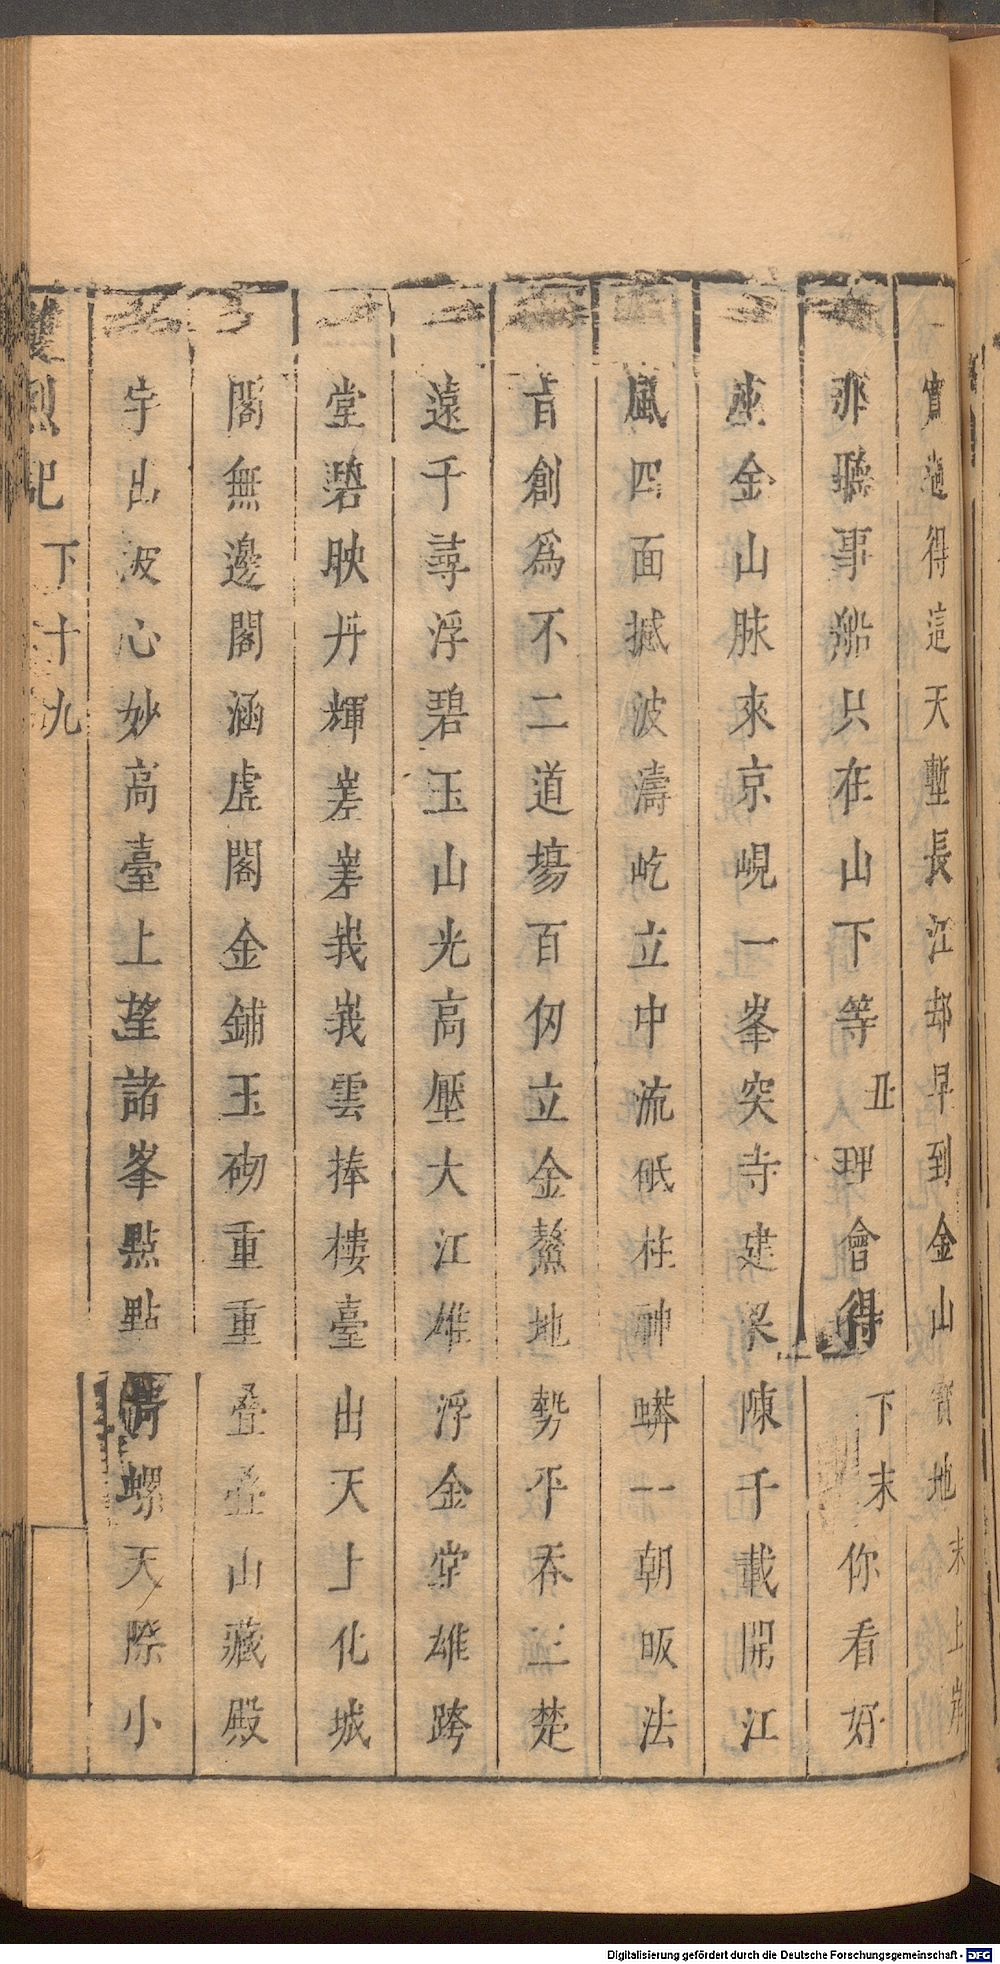 實過得這天塹長江却早到金山實地末上岸
那聽事船只在山下等丑理會得下末你看好
座金山脉來京峴一峯突寺建梁陳千載開江
風四面撼波濤屹立中流砥柱神蟒一朝皈法
旨創爲不二道場百仞立金鰲地勢平吞三楚
遠千尋浮碧玉山光高壓大江雄浮金堂雄跨
堂碧映丹輝嵳嵳峩峩雲捧樓臺出天上化城
閣無邊閣涵虗閣金鋪玉砌重重叠叠山藏殿
宇出波心妙高臺上望諸峯點點青螺天際小
雙烈記 下十九
Digitalisierung gefördert durch die Deutsche Forschungsgemeinschaft - DFG